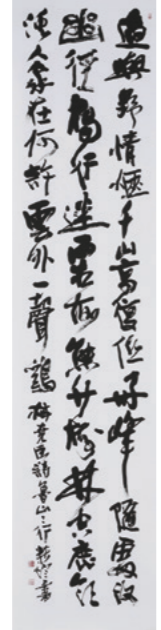 適與野情愜千山高復低好峰隨處改
幽徑獨行迷霜落熊升樹林空鹿飲
溪人家在何許雲外一聲鷄 梅堯臣詩魯山々行 書